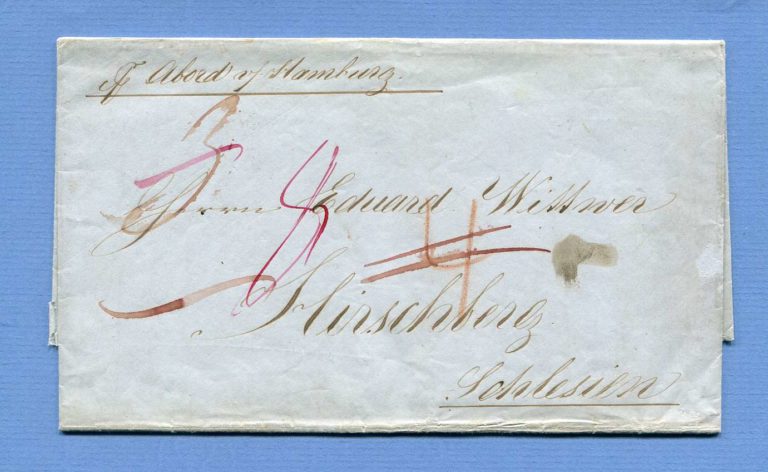 pr Abord v/ Hamburg.
3
Herrn Eduard Wittwer
4
Hirschberg
Schlesien